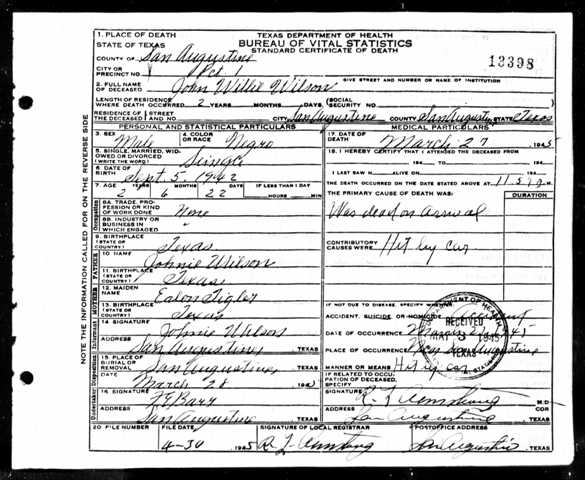 1. PLACE OF DEATH
STATE OF TEXAS
TEXAS DEPARTMENT OF HEALTH
BUREAU OF VITAL STATISTICS
STANDARD CERTIFICATE OF DEATH
13398
COUNTY OF San Augustine
CITY OR PRECINCT NO. Pct 1
GIVE STREET AND NUMBER OR NAME OF INSTITUTION
2. FULL NAME OF DECEASED John Willie Wilson
LENGTH OF RESIDENCE WHERE DEATH OCCURRED 2 YEARS MONTHS DAYS (SOCIAL SECURITY NO.
RESIDENCE OF THE DECEASED STREET AND NO. CITY San Augustine COUNTY San Augustine STATE Texas
PERSONAL AND STATISTICAL PARTICULARS
3. SEX Male
4. COLOR OR RACE Negro
5. SINGLE, MARRIED, WIDOWED OR DIVORCED (WRITE THE WORD) Single
6. DATE OF BIRTH Sept. 5, 1942
7. AGE YEARS MONTHS DAYS IF LESS THAN 1 DAY
2 6 22 HOURS MIN.
8A. TRADE, PROFESSION OR KIND OF WORK DONE None
8B. INDUSTRY OR BUSINESS IN WHICH ENGAGED "
9. BIRTHPLACE (STATE OR COUNTRY) Texas
10. NAME Johnie Wilson
11. BIRTHPLACE (STATE OR COUNTRY) Texas
12. MAIDEN NAME
13. BIRTHPLACE (STATE OR COUNTRY) Texas
14. SIGNATURE Johnie Wilson
ADDRESS San Augustine TEXAS
15. PLACE OF BURIAL OR REMOVAL San Augustine TEXAS
March 28 194
16. SIGNATURE
ADDRESS San Augustine TEXAS
MEDICAL PARTICULARS
17. DATE OF DEATH March 27 1945
18. I HEREBY CERTIFY THAT I ATTENDED THE DECEASED FROM
194 TO 194
I LAST SAW H ALIVE ON 194
THE DEATH OCCURRED ON THE DATE STATED ABOVE AT M.
THE PRIMARY CAUSE OF DEATH WAS: DURATION
Was dead on arrival
CONTRIBUTORY CAUSES WERE: Hit by car
IF NOT DUE TO DISEASE, SPECIFY:
ACCIDENT, SUICIDE OR HOMICIDE Accident
DATE OF OCCURRENCE
PLACE OF OCCURRENCE San Augustine
MANNER OR MEANS Hit by car
IF RELATED TO OCCUPATION OF DECEASED, SPECIFY
SIGNATURE R J Armstrong M.D.
ADDRESS San Augustine TEXAS
RECEIVED
MAY 3 1945
TEXAS
20 FILE NUMBER
FILE DATE 4-30 1945
SIGNATURE OF LOCAL REGISTRAR R J Armstrong
POSTOFFICE ADDRESS San Augustine TEXAS
NOTE THE INFORMATION CALLED FOR ON THE REVERSE SIDE
Occupation
FATHER
MOTHER
Informant
Disposition
Undertaker